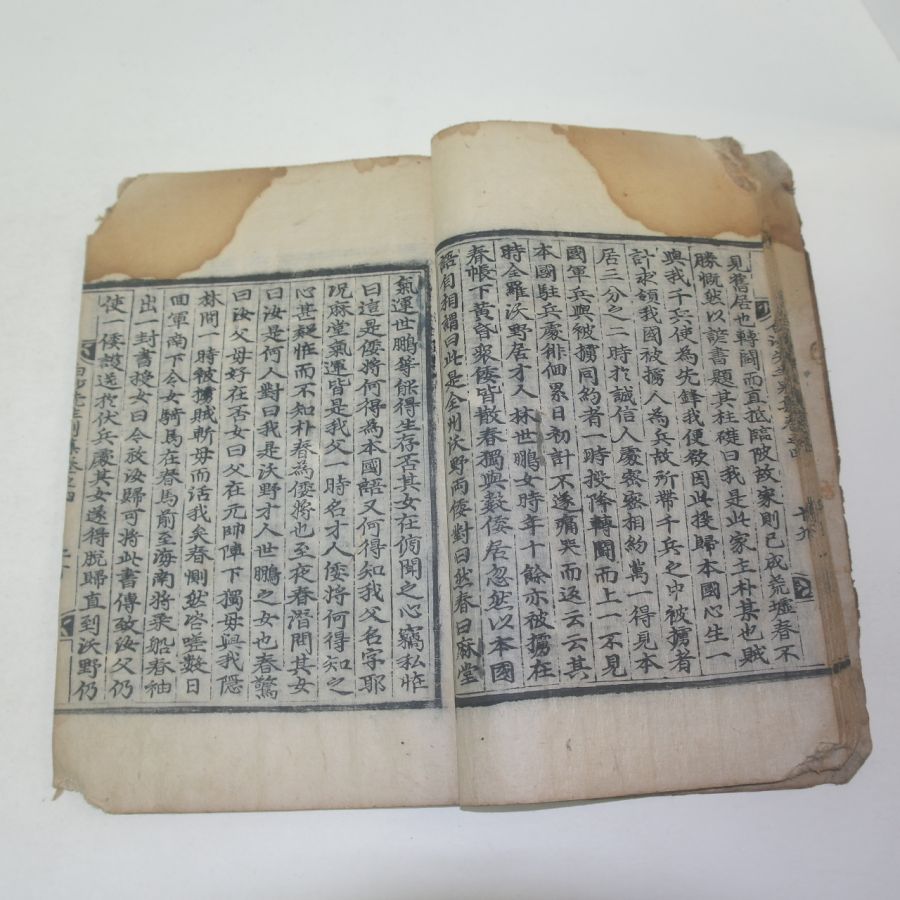 見舊居也轉鬪而直抵臨陂故家則已成荒墟春不
勝慨然以諺書題其柱礎曰我是此家主朴某也賊
與我千兵使為先鋒我便欲因此投歸本國心生一
計求領我國被擄人為兵故所帶千兵之中被擄者
居三分之二時於誠信人處密密相約萬一得見本
國軍兵與被擄同約者一時投降轉鬪而上一不見
本國駐兵處徘徊累日初計不遂痛哭而返云云其
時全羅沃野居才人林世鵬女時年十餘亦被擄在
春帳下黃昏眾倭皆散春獨與數倭居忽然以本國
語自相謂曰此是全州沃野兩倭對曰然春曰麻堂
氣運世鵬等能得生存否其女在傍聞之心竊私怪
曰這是倭將何得為本國語又何得知我父名字耶
況麻堂氣運皆是我父一時名才人倭將何得知之
心甚疑怪而不知朴春為倭將也至夜春潛問其女
曰汝是何人對曰我是沃野才人世鵬之女也春驚
曰汝父母好在否女曰父在元帥陣下獨母與我隱
林間一時被擄賊斬母而活我矣春惻然咨嗟數日
回軍南下令女騎馬在春馬前至海南將乘船春袖
出一封書授女曰今放汝歸可將此書傳致汝父仍
使一倭護送於伏兵處其女遂得脫歸直到沃野仍